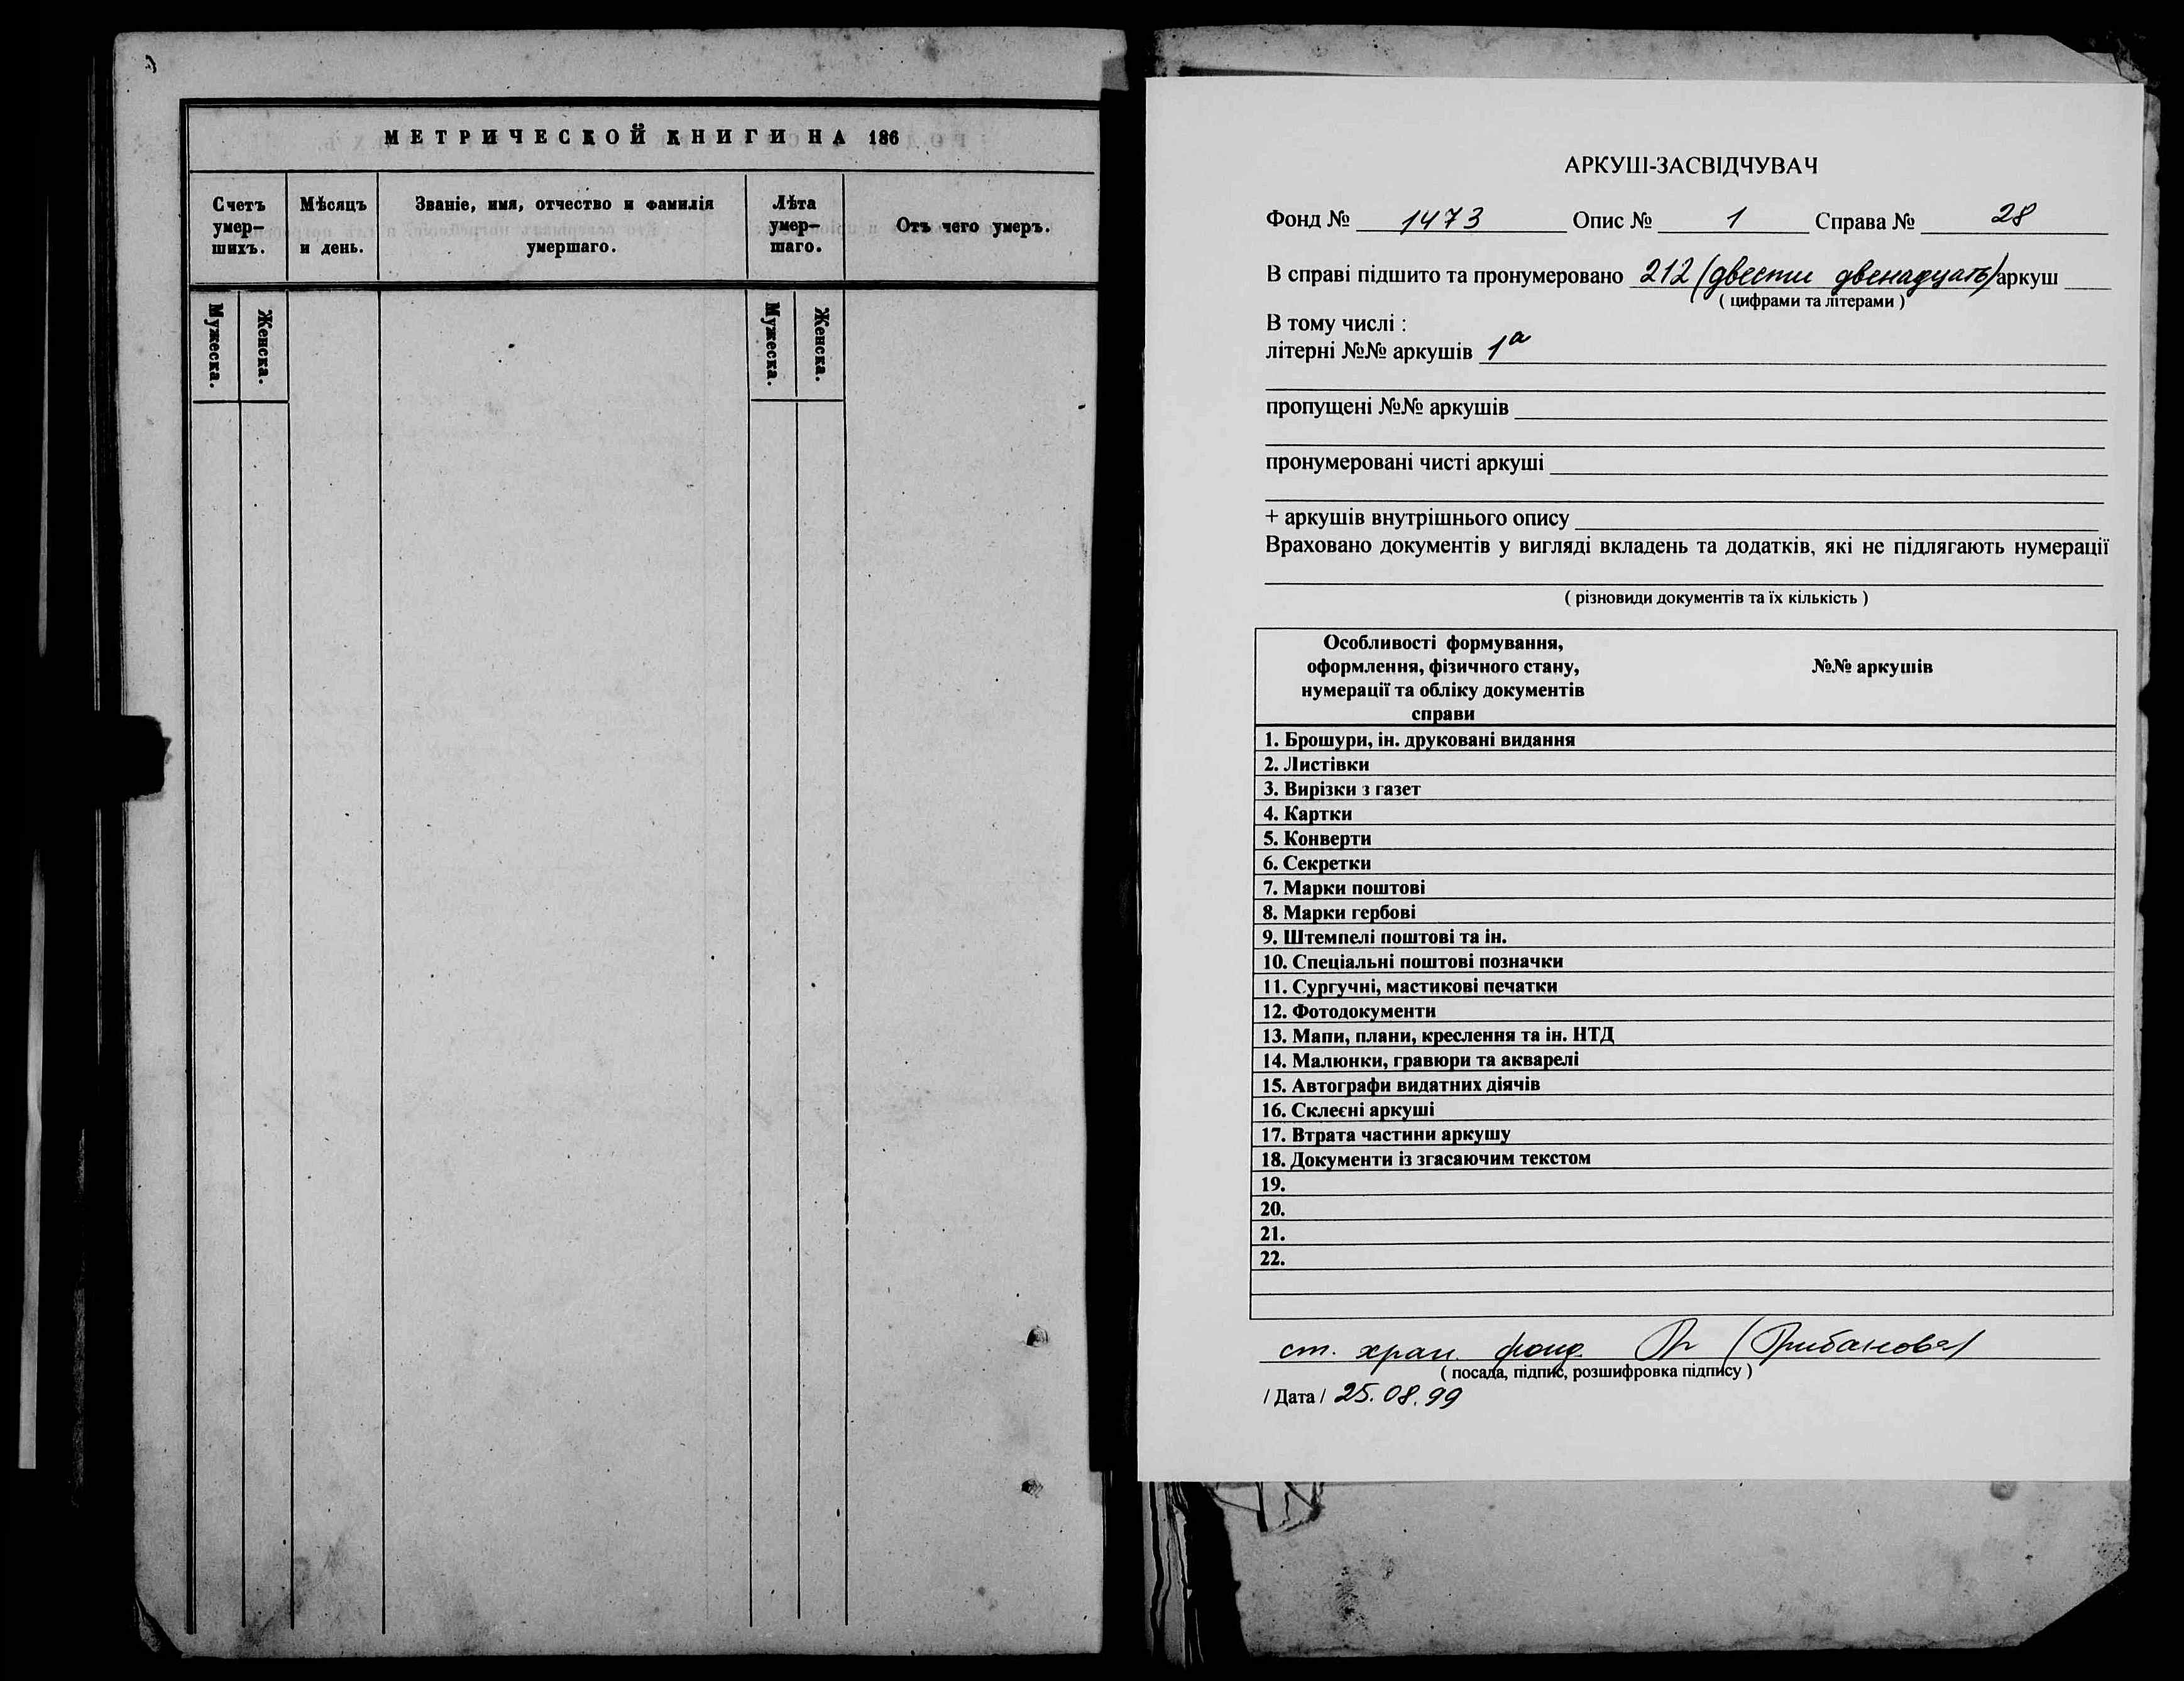 МЕТРИЧЕСКОЙ КНИГИ НА 186
Счетъ умер-шихъ.
Мѣсяцъ и день.
Званіе, имя, отчество и фамилія умершаго.
Лѣта умер-шаго.
Отъ чего умеръ.
Мужеска.
Женска.
Мужеска.
Женска.
АРКУШ-ЗАСВІДЧУВАЧ
Фонд № 1473 Опис № 1 Справа № 28
В справі підшито та пронумеровано 212 (двести двенадцать) аркуш
( цифрами та літерами )
В тому числі :
літерні №№ аркушів 1а
пропущені №№ аркушів
пронумеровані чисті аркуші
+ аркушів внутрішнього опису
Враховано документів у вигляді вкладень та додатків, які не підлягають нумерації
( різновиди документів та їх кількість )
Особливості формування,
оформлення, фізичного стану,
нумерації та обліку документів
справи
№№ аркушів
1. Брошури, ін. друковані видання
2. Листівки
3. Вирізки з газет
4. Картки
5. Конверти
6. Секретки
7. Марки поштові
8. Марки гербові
9. Штемпелі поштові та ін.
10. Спеціальні поштові позначки
11. Сургучні, мастикові печатки
12. Фотодокументи
13. Мапи, плани, креслення та ін. НТД
14. Малюнки, гравюри та акварелі
15. Автографи видатних діячів
16. Склеєні аркуші
17. Втрата частини аркушу
18. Документи із згасаючим текстом
19.
20.
21.
22.
ст. хран. фонд.
( посада, підпис, розшифровка підпису )
/ Дата / 25.08.99